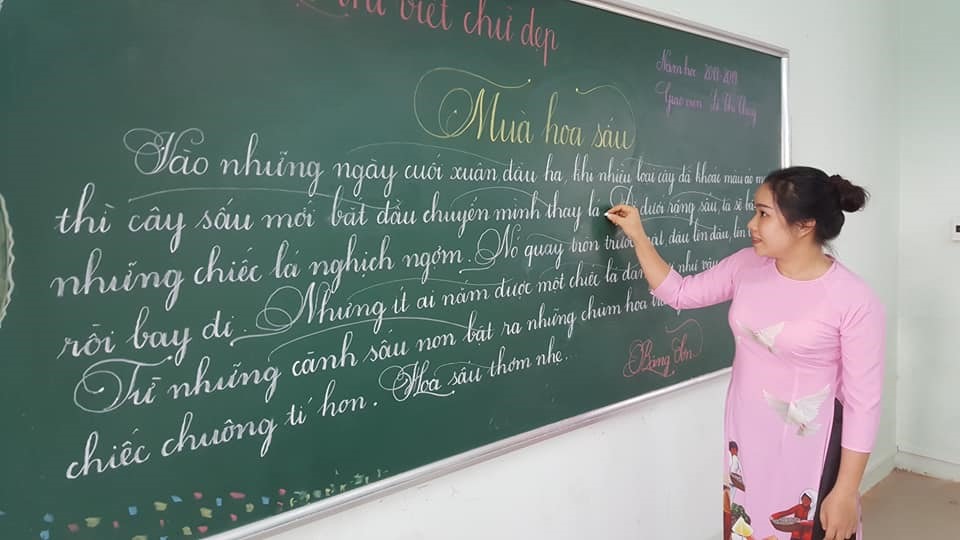 thi viết chữ đẹp
Năm học 2018-2019
Giáo viên
Mùa hoa sấu
Vào những ngày cuối xuân đầu hạ, khi nhiều loài cây đã khoác màu áo m
thì cây sấu mới bắt đầu chuyển mình thay lá. Đi dưới rặng sấu, ta sẽ
những chiếc lá nghịch ngợm. Nó quay tròn trước mặt, đậu lên đầu, lên
rồi bay đi. Nhưng ít ai nắm được một chiếc lá đang như vậy
Từ những cành sấu non bật ra những chùm hoa
chiếc chuông tí hon. Hoa sấu thơm nhẹ...
Băng Sơn